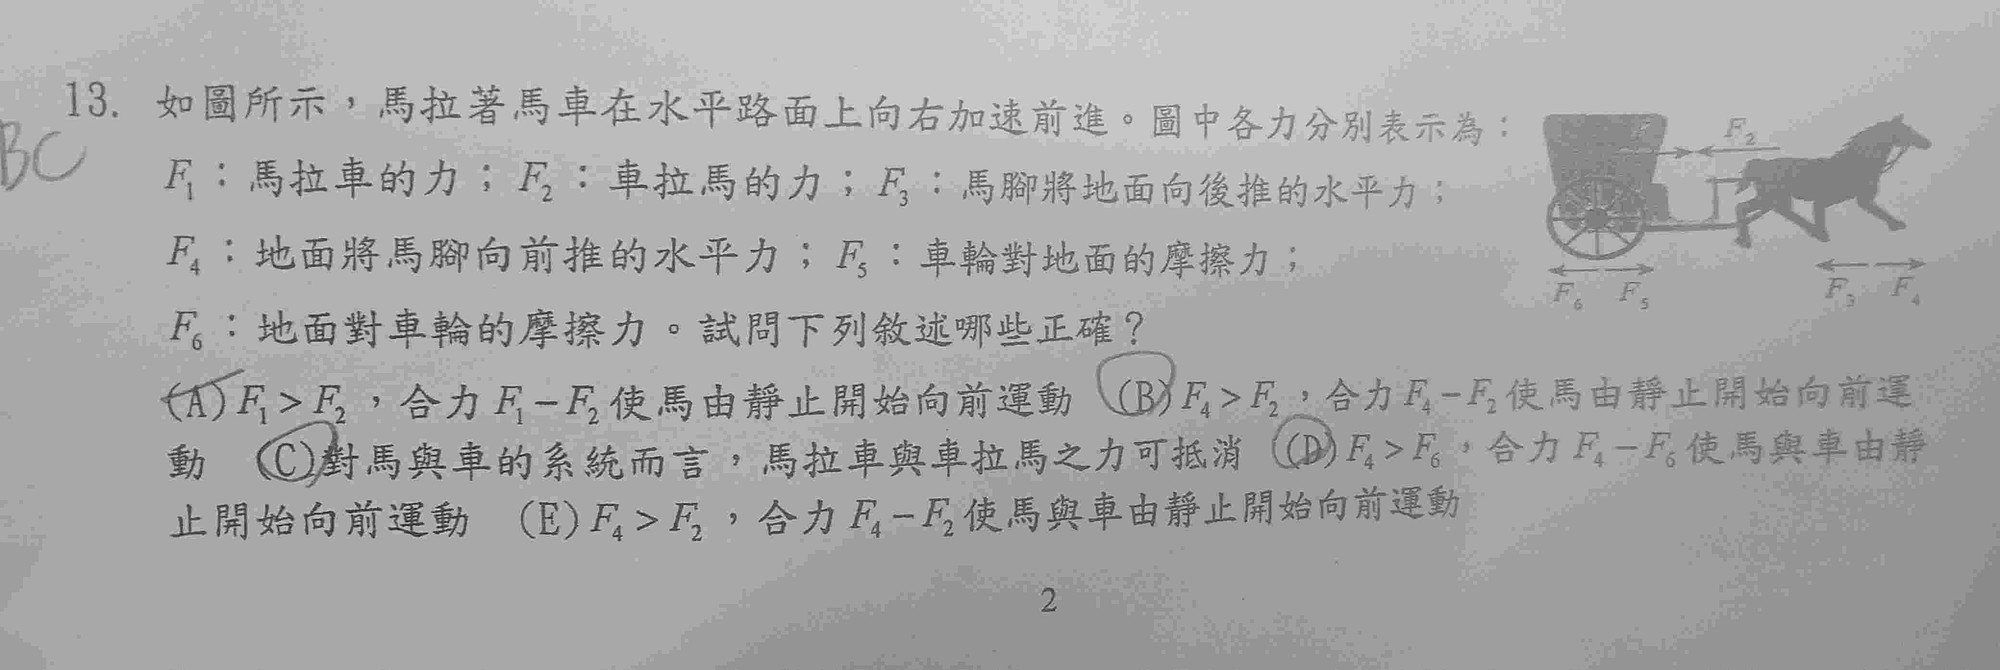 13. 如圖所示，馬拉著馬車在水平路面上向右加速前進。圖中各力分別表示為：
BC
F₁：馬拉車的力；F₂：車拉馬的力；F₃：馬腳將地面向後推的水平力；
F₄：地面將馬腳向前推的水平力；F₅：車輪對地面的摩擦力；
F₆：地面對車輪的摩擦力。試問下列敘述哪些正確？
(A) F₁ > F₂，合力 F₁ − F₂ 使馬由靜止開始向前運動 (B) F₄ > F₂，合力 F₄ − F₂ 使馬由靜止開始向前運
動 (C) 對馬與車的系統而言，馬拉車與車拉馬之力可抵消 (D) F₄ > F₆，合力 F₄ − F₆ 使馬與車由靜
止開始向前運動 (E) F₄ > F₂，合力 F₄ − F₂ 使馬與車由靜止開始向前運動
F₂
F₆ F₅ F₃ F₄
2